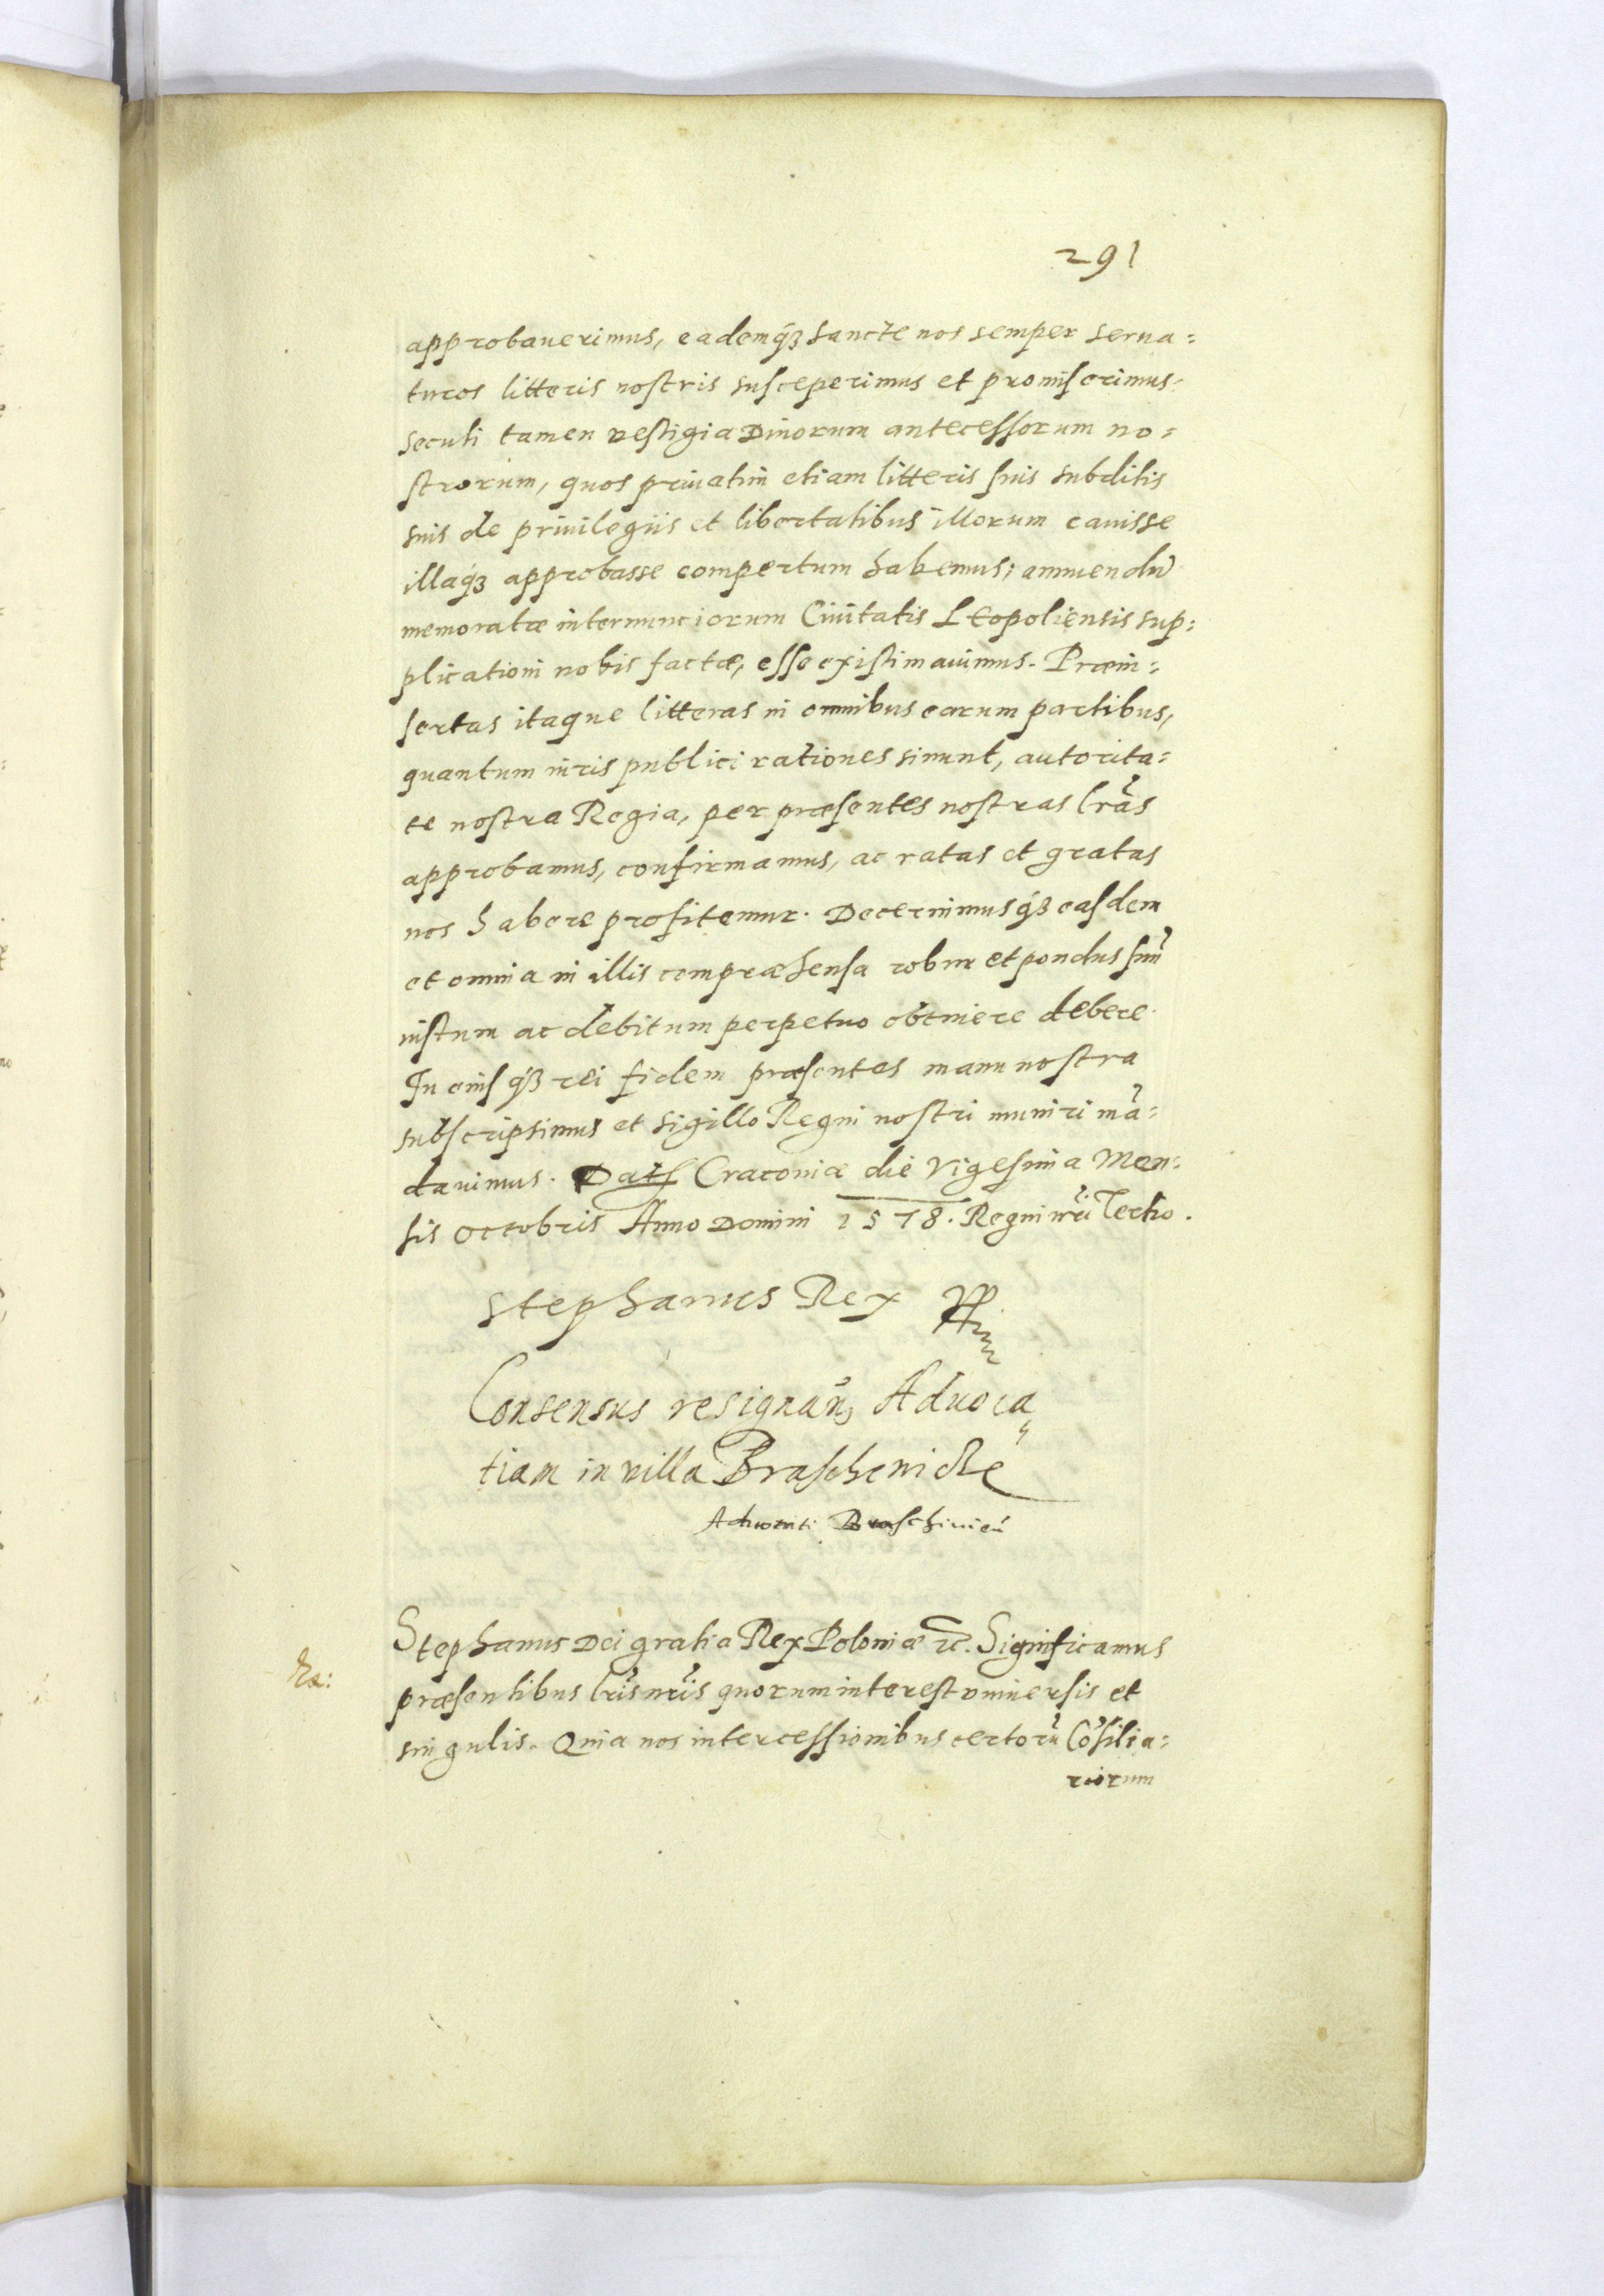 291
approbauerimus, eademq́ꝫ sancte nos semper serua=
turos litteris nostris susceperimus et promiserimus.
secuti tamen vestigia Diuorum antecessorum no=
strorum, quos priuatim etiam litteris suis subditis
suis de priuilegiis et libertatibus illorum cauisse
illaq́ꝫ approbasse compertum habemus; annuendũ
memoratæ internunciorum Ciuitatis Leopoliensis sup=
plicationi nobis factæ, esse existimauimus. Præin=
sertas itaque litteras in omnibus earum partibus,
quantum iuris publici rationes sinunt, autorita=
te nostra Regia, per præsentes nostras lr̃as
approbamus, confirmamus, ac ratas et gratas
nos habere profitemur. Decernimusq́ꝫ easdem
et omnia in illis compræhensa robur et pondus suũ
iustum ac debitum perpetuo obtinere debere.
In eiusq́ꝫ rei fidem præsentes manu nostra
subscripsimus et sigillo Regni nostri muniri mã=
dauimus. Dat̃ Cracouiæ die vigesima Men=
sis octobris Anno Domini 1578. Regni nr̃i Tertio.
Stephanus Rex
Consensus resignañ Aduoca
tiam in villa Braschenicze
Aduocati Braschinień
Stephanus Dei gratia Rex Poloniæ ꝛc. Significamus
præsentibus lr̃is nr̃is quorum interest vniuersis et
singulis. Quia nos intercessionibus certorũ Cõsilia=
riorum